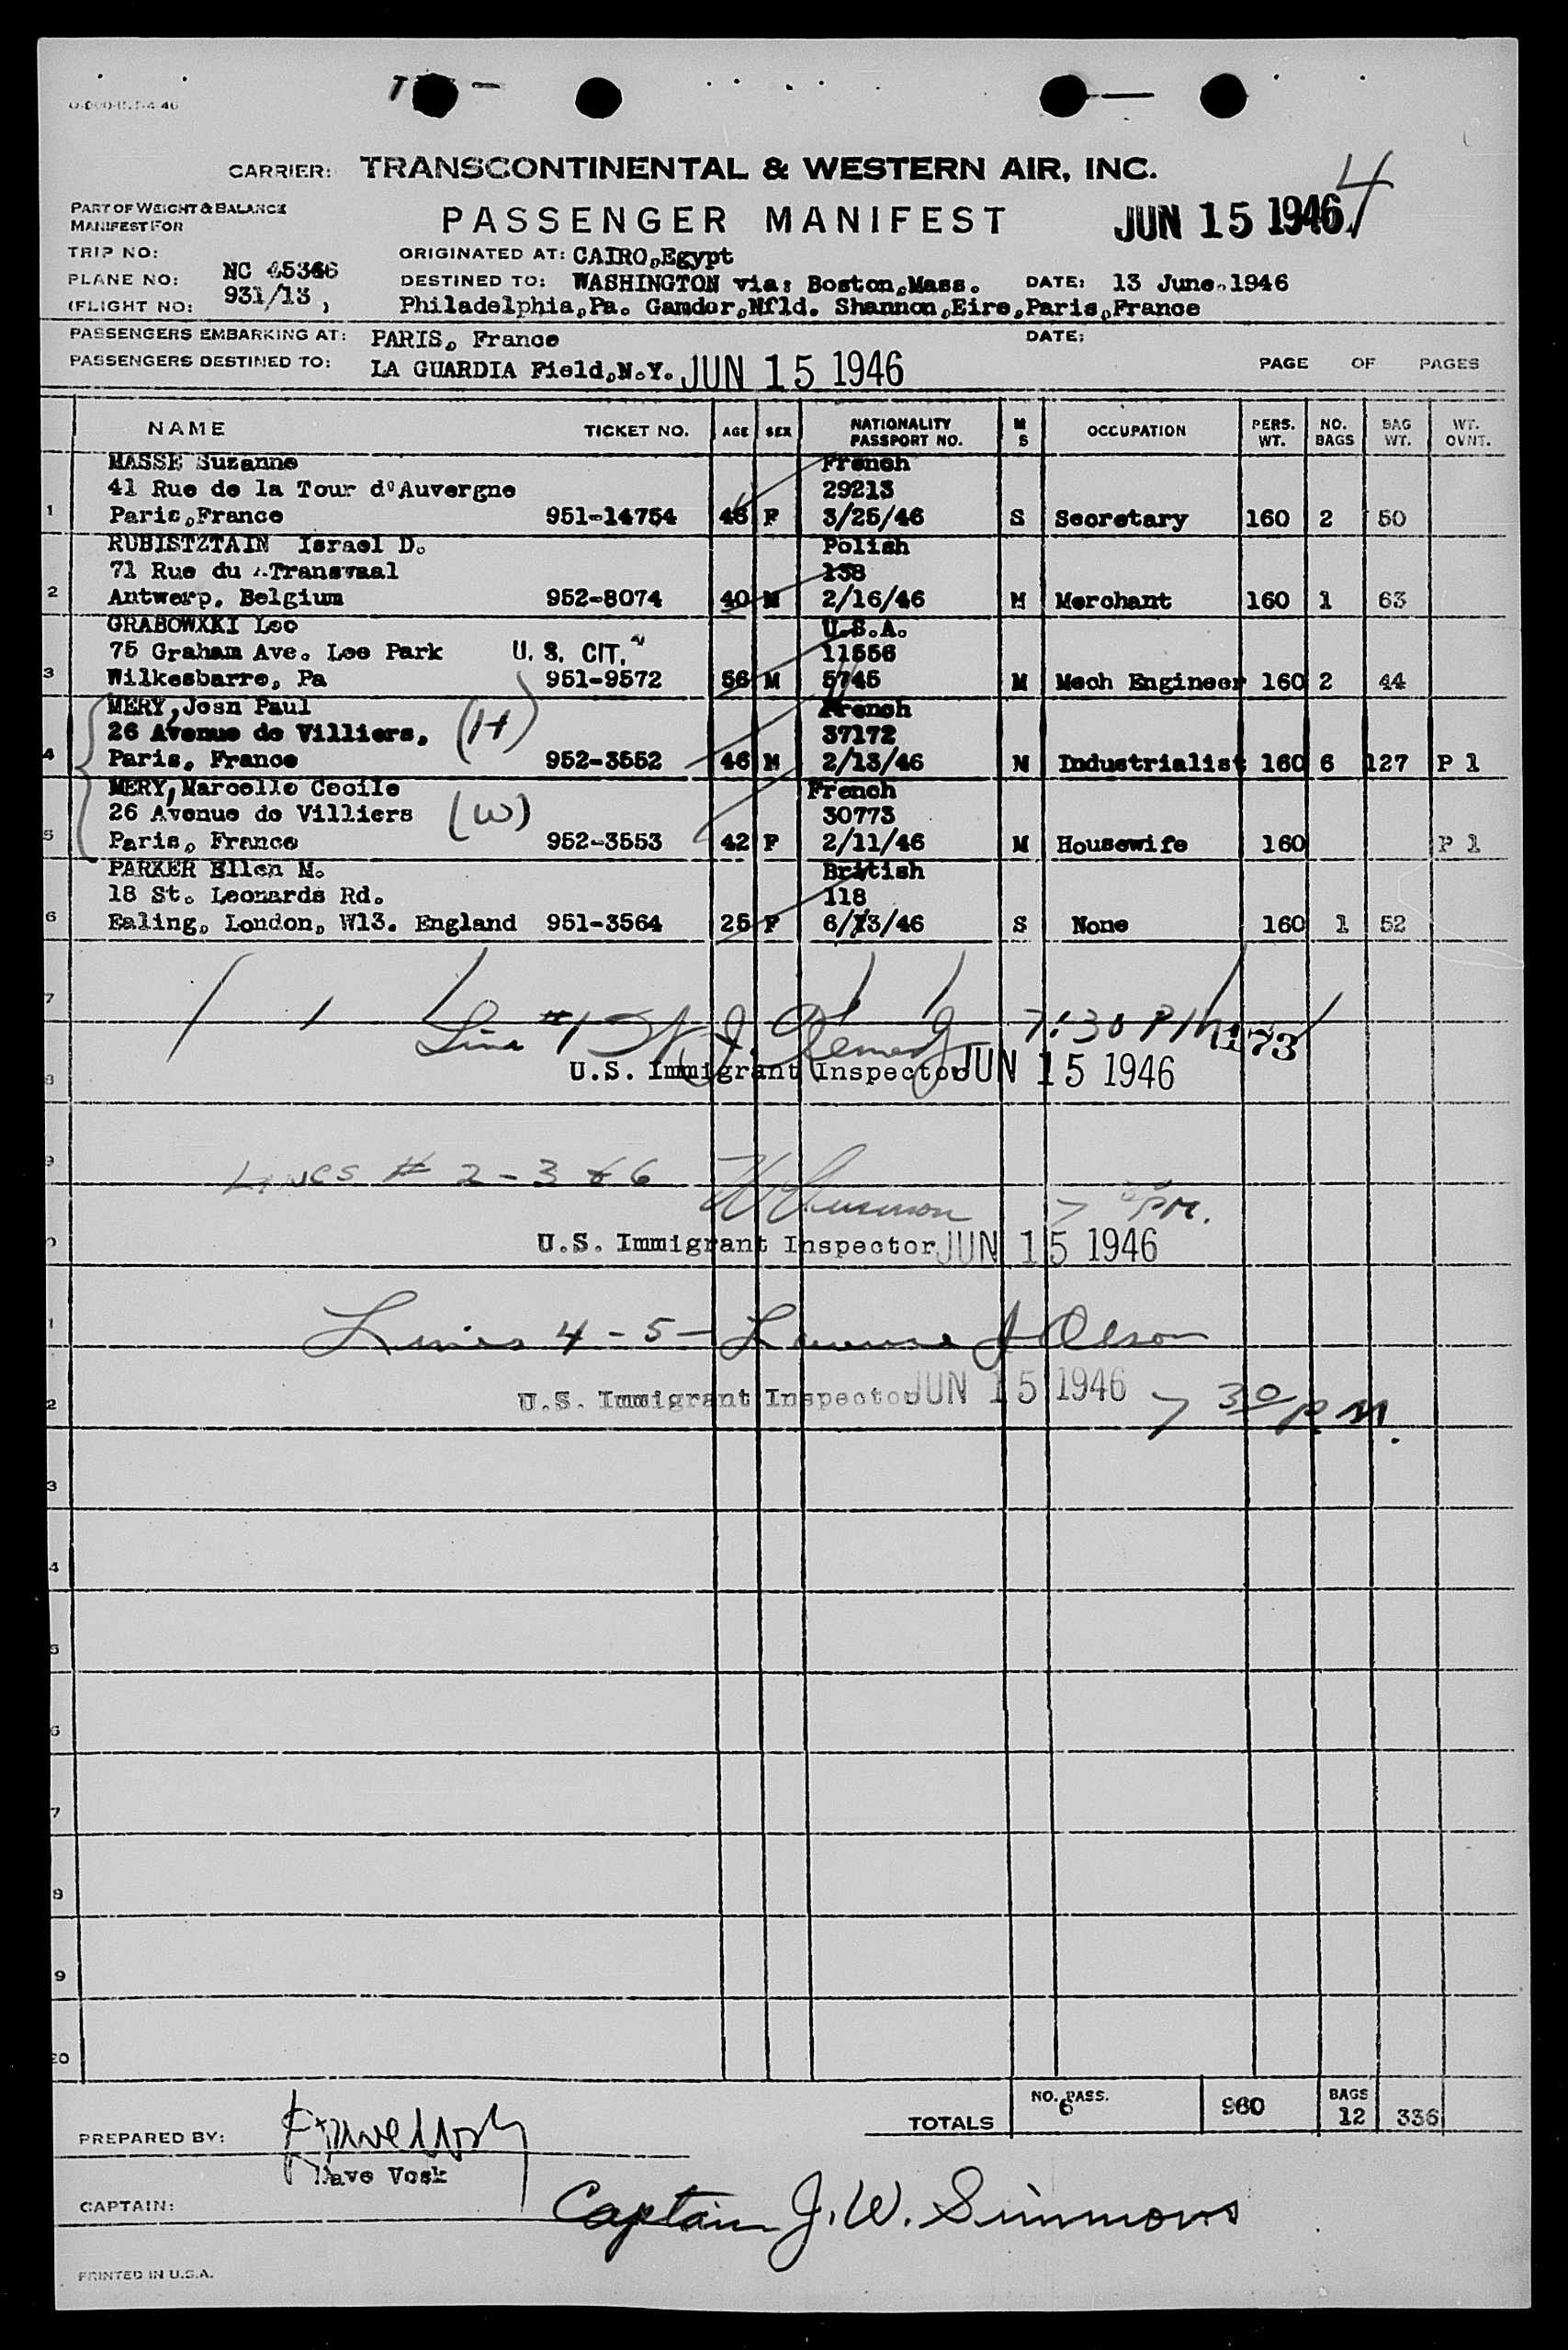 CARRIER: TRANSCONTINENTAL & WESTERN AIR, INC.
4
PART OF WEIGHT & BALANCE
MANIFEST FOR
PASSENGER MANIFEST
JUN 15 1946
TRIP NO:
ORIGINATED AT: CAIRO,Egypt
PLANE NO: NC 45346
DESTINED TO: WASHINGTON via: Boston,Mass. DATE: 13 June.1946
(FLIGHT NO: 931/13 ,
Philadelphia,Pa. Gamdor,Nfld. Shannon,Eire,Paris,France
PASSENGERS EMBARKING AT: PARIS, France DATE:
PASSENGERS DESTINED TO: LA GUARDIA Field,N.Y. JUN 15 1946 PAGE OF PAGES
NAME TICKET NO. AGE SEX NATIONALITY PASSPORT NO. M S OCCUPATION PERS. WT. NO. BAGS BAG WT. WT. OVNT.
MASSE Suzanne French
41 Rue de la Tour d'Auvergne 29213
1 Paris,France 951-14754 46 F 3/25/46 S Secretary 160 2 50
RUBISTZTAIN Israel D. Polish
71 Rue du Transvaal 138
2 Antwerp, Belgium 952-8074 40 M 2/16/46 M Merchant 160 1 63
GRABOWXKI Leo U.S.A.
75 Graham Ave. Lee Park U. S. CIT. 11556
3 Wilkesbarre, Pa 951-9572 56 M 5745 M Mech Engineer 160 2 44
MERY,Jean Paul French
26 Avenue de Villiers, (H) 37172
4 Paris, France 952-3552 46 M 2/13/46 M Industrialist 160 6 127 P 1
MERY,Marcelle Cecile French
26 Avenue de Villiers (W) 30773
5 Paris, France 952-3553 42 F 2/11/46 M Housewife 160 P 1
PARKER Ellen M. British
18 St. Leonards Rd. 118
6 Ealing, London, W13. England 951-3564 25 F 6/13/46 S None 160 1 52
7
Line #1 7:30 PM 173
8 U.S. Immigrant Inspector JUN 15 1946
9 LINES # 2-3 & 6 7 PM.
U.S. Immigrant Inspector JUN 15 1946
1 Lines 4-5- Lawrence J Olson
2 U.S. Immigrant Inspector JUN 15 1946 7 30 PM.
3
4
5
6
7
8
9
20
TOTALS NO. PASS. 6 960 BAGS 12 336
PREPARED BY:
Dave Vosk
CAPTAIN: Captain J. W. Simmons
PRINTED IN U.S.A.